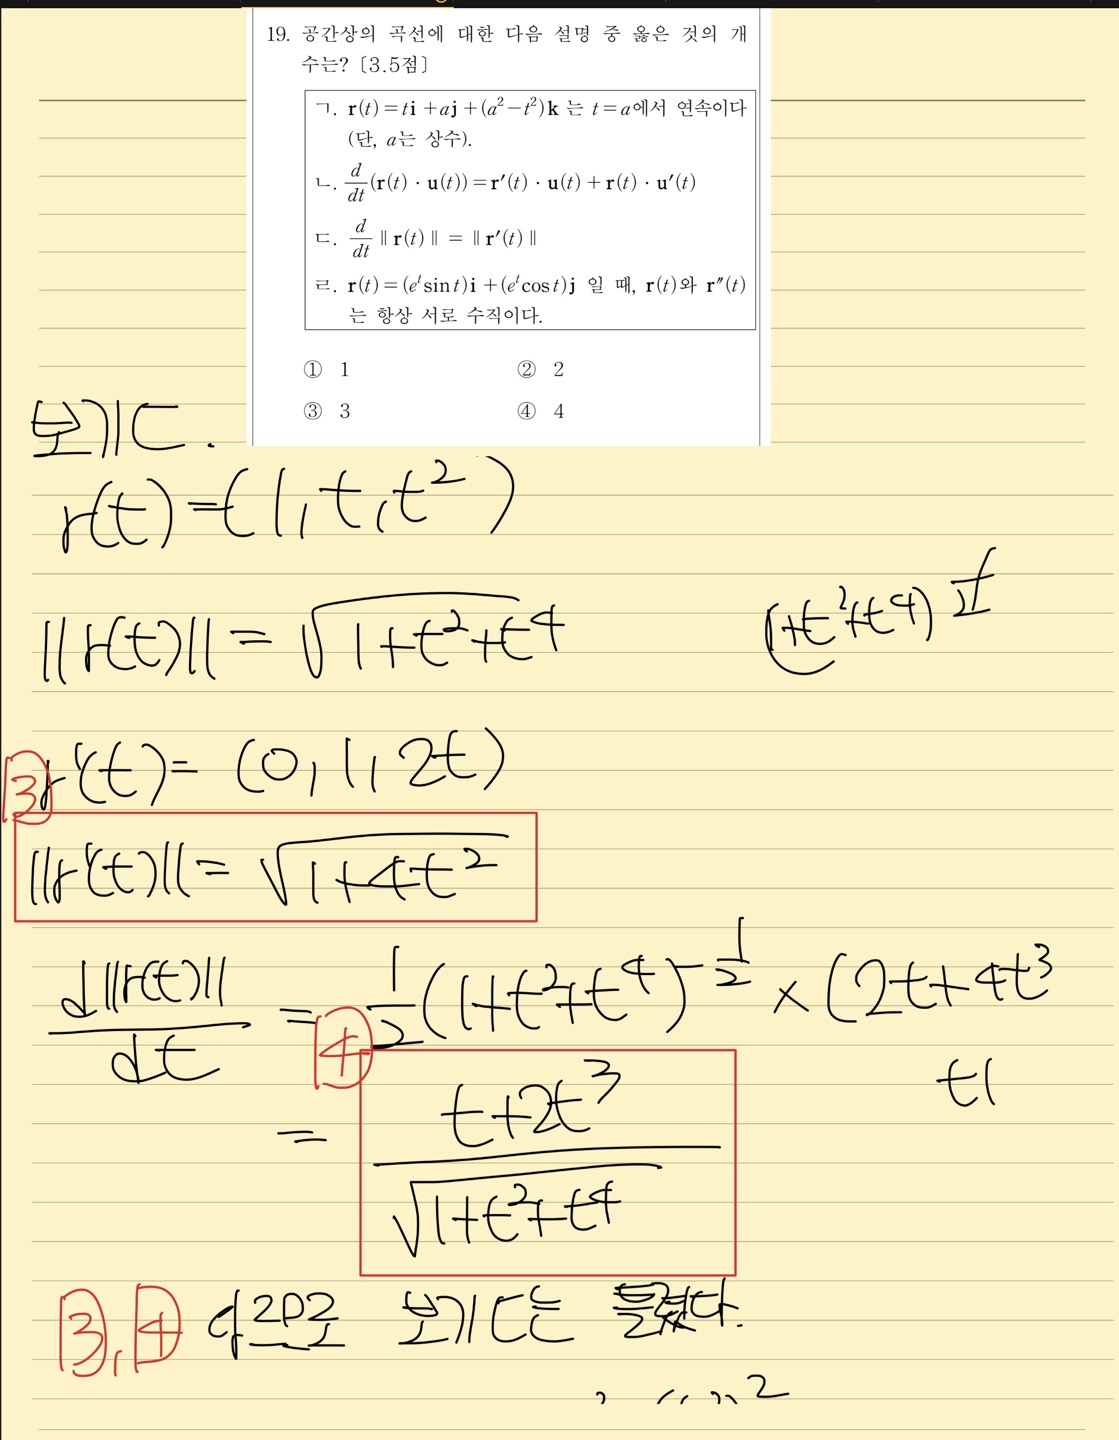 19. 공간상의 곡선에 대한 다음 설명 중 옳은 것의 개
수는? 〔3.5점〕
ㄱ. r(t)=ti+aj+(a²−t²)k 는 t=a에서 연속이다
(단, a는 상수).
ㄴ. d/dt (r(t)·u(t))=r′(t)·u(t)+r(t)·u′(t)
ㄷ. d/dt ∥r(t)∥ = ∥r′(t)∥
ㄹ. r(t)=(eᵗsin t)i+(eᵗcos t)j 일 때, r(t)와 r″(t)
는 항상 서로 수직이다.
① 1 ② 2
③ 3 ④ 4
보기ㄷ.
r(t)=(1,t,t²)
||r(t)||=√(1+t²+t⁴) (1+t²+t⁴)
3 r'(t)=(0,1,2t)
||r'(t)||=√(1+4t²)
d||r(t)||/dt = 1/2(1+t²+t⁴)^(-1/2)×(2t+4t³
4
= (t+2t³)/√(1+t²+t⁴)
3,4 보기ㄷ는 틀렸다.